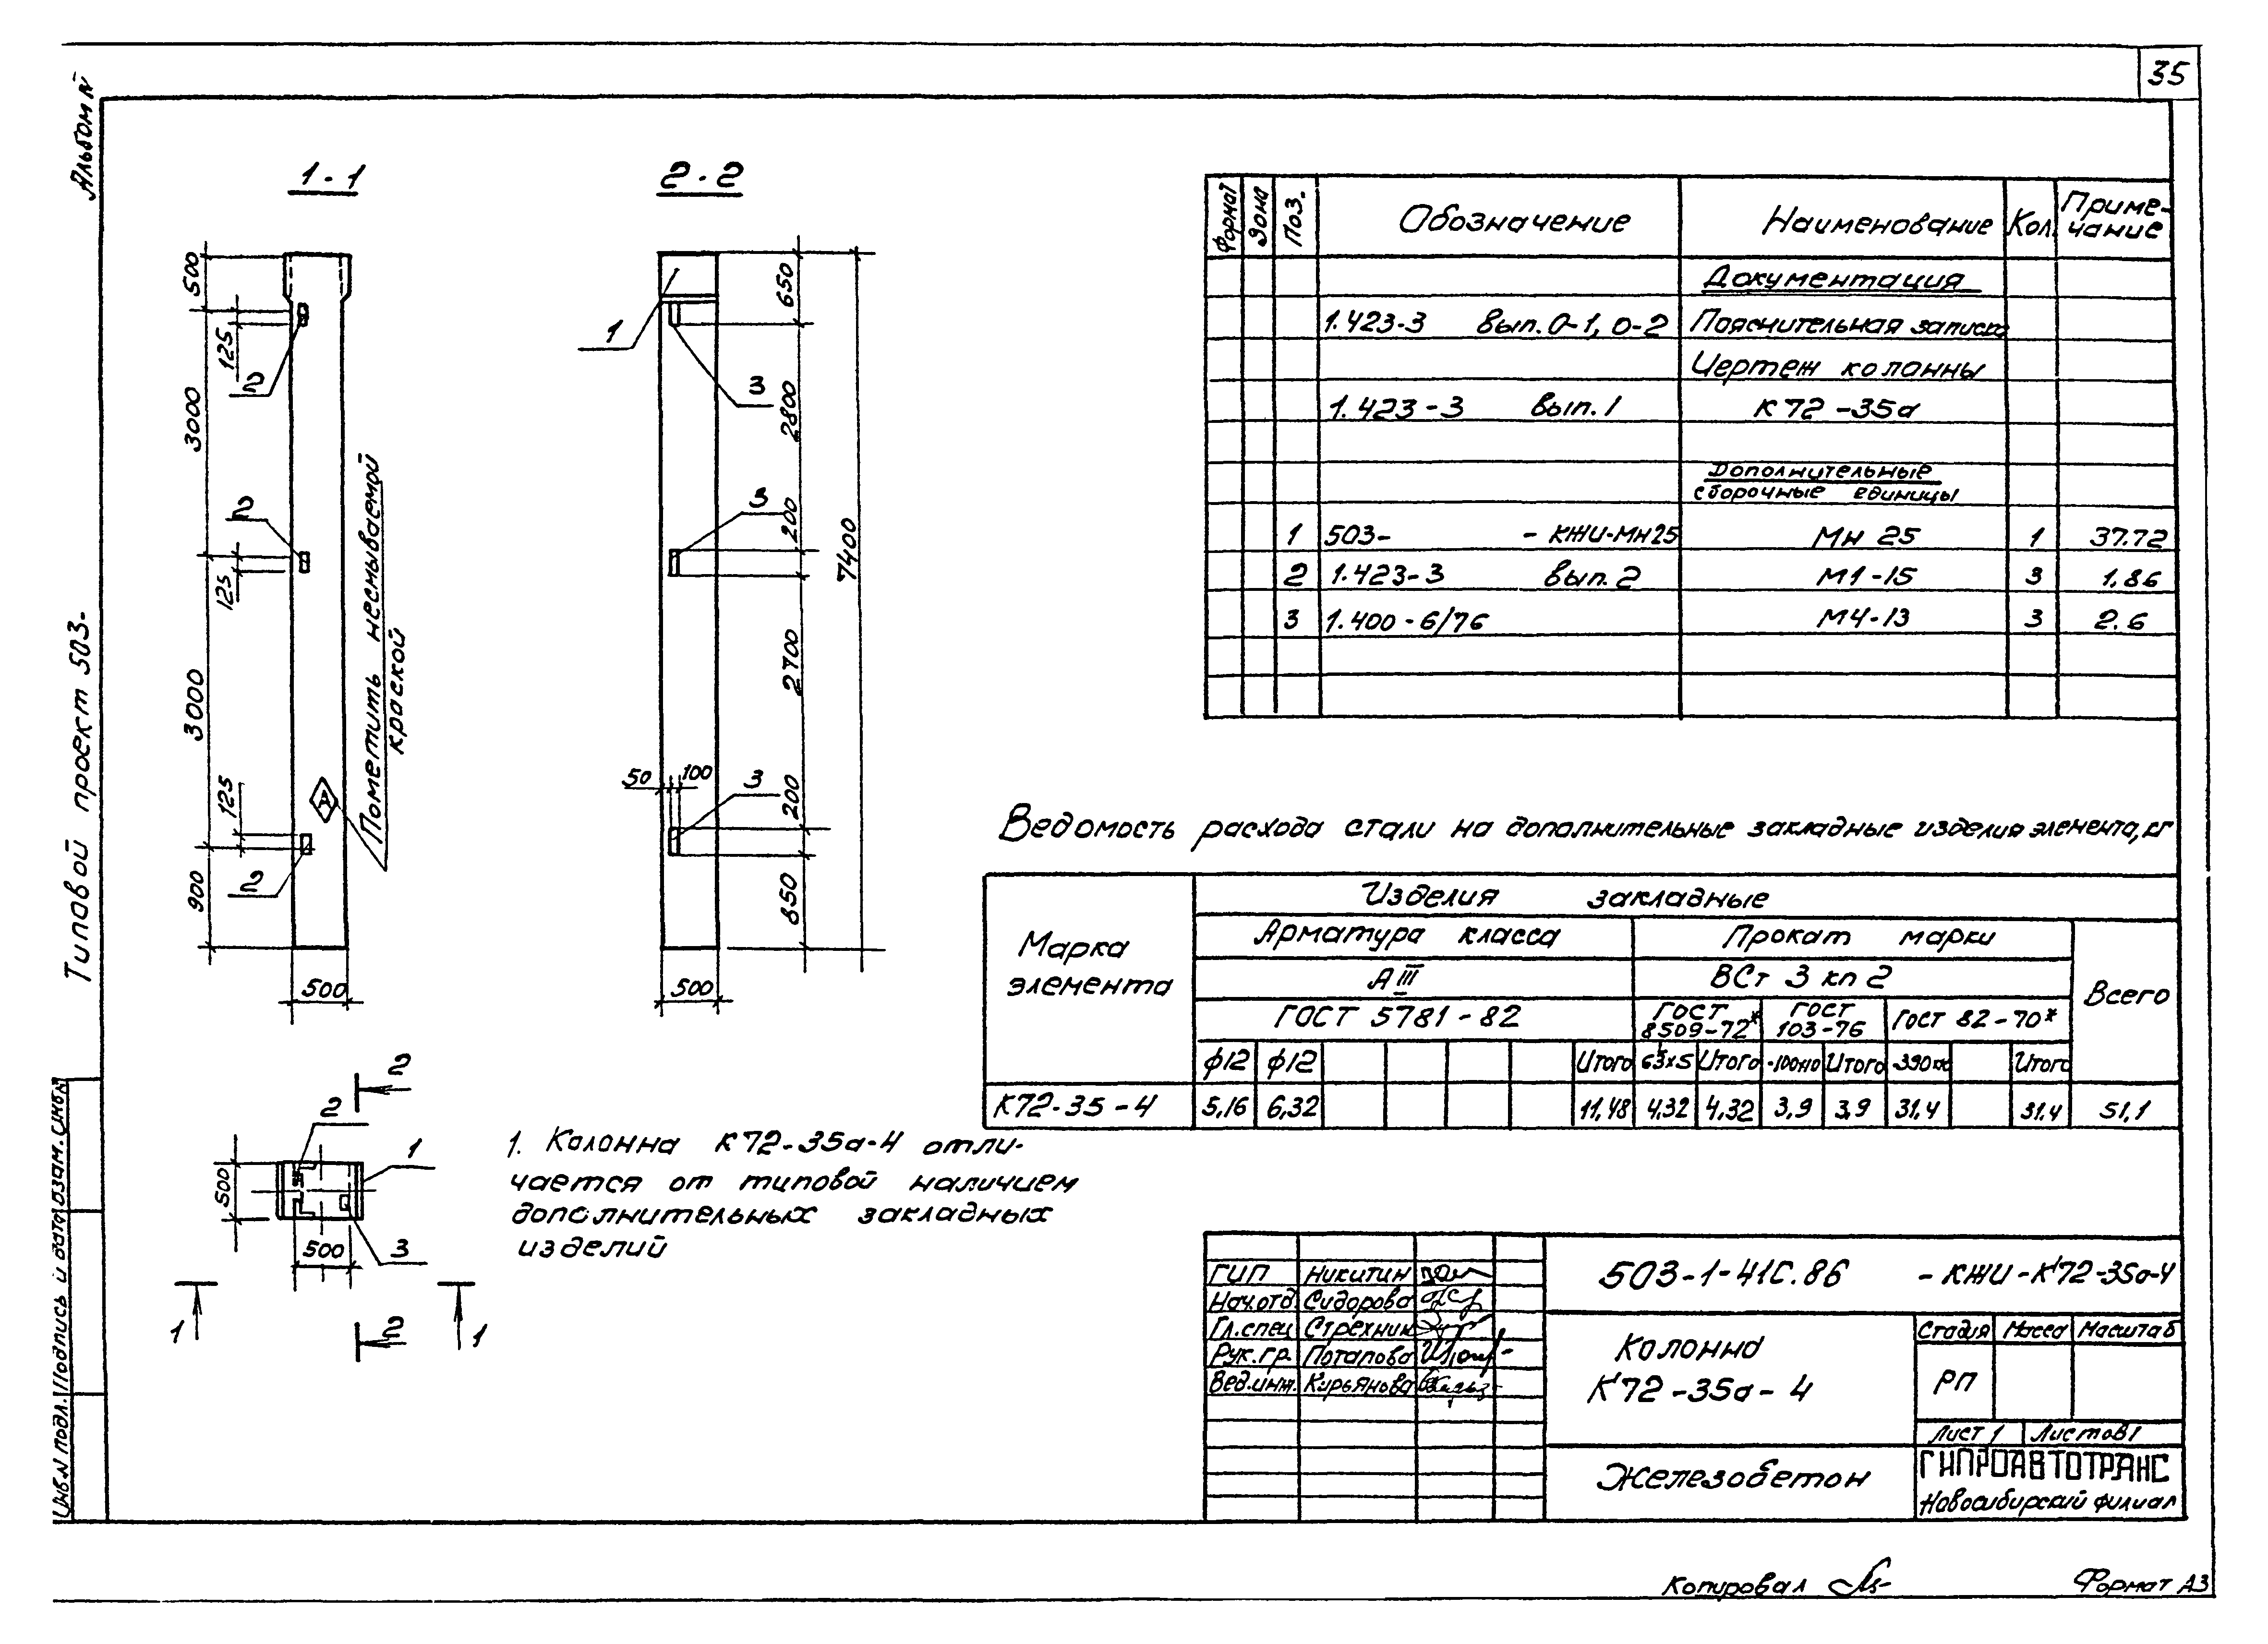 35
Альбом №
1-1
2-2
500
125
3000
125
3000
125
900
500
2
2
2
А
Пометить несмываемой
краской
1
3
3
3
650
2800
200
2700
200
850
7400
50
100
500
Типовой проект 503-
2
2
1
500
500
3
1
1
2
1. Колонна К72-35а-4 отли-
чается от типовой наличием
дополнительных закладных
изделий
Формат Зона Поз. Обозначение Наименование Кол. Приме-
чание
Документация
1.423-3 вып. 0-1, 0-2 Пояснительная записка
Чертеж колонны
1.423-3 вып. 1 К72-35а
Дополнительные
сборочные единицы
1 503- - КЖИ-Мн25 Мн 25 1 37.72
2 1.423-3 вып. 2 М1-15 3 1.86
3 1.400-6/76 М4-13 3 2.6
Ведомость расхода стали на дополнительные закладные изделия элемента, кг
Марка
элемента
Изделия закладные
Арматура класса Прокат марки
АIII ВСт 3 кп 2 Всего
ГОСТ 5781-82 ГОСТ
8509-72* ГОСТ
103-76 ГОСТ 82-70*
ф12 ф12 Итого 63х5 Итого Итого Итого
К72-35-4 5,16 6,32 11,48 4,32 4,32 3,9 3,9 31.4 31.4 51,1
ГИП Никитин
Нач.отд Сидорова
Гл.спец Стрехнин
Рук.гр. Потапова
Вед.инж. Кирьянова
503-1-41С.86 - КЖИ-К72-35а-4
Колонна
К72-35а-4
Стадия Масса Масштаб
РП
Лист 1 Листов 1
Железобетон
ГИПРОАВТОТРАНС
Новосибирский филиал
Инв.№ подл. Подпись и дата Взам. инв.№
Копировал
Формат А3